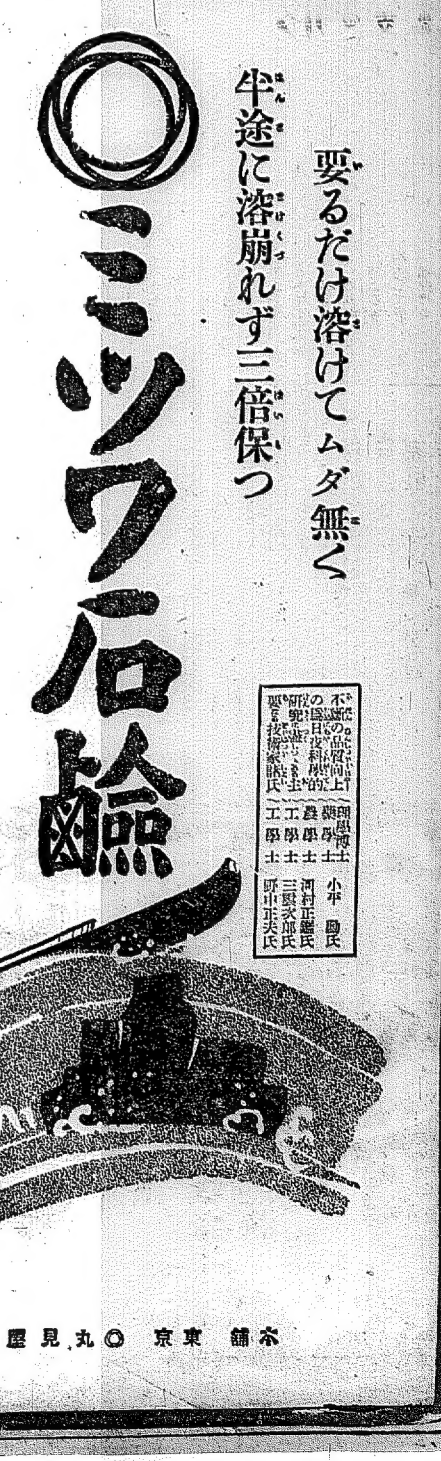 要るだけ溶けてムダ無く
半途に溶崩れず三倍保つ
ミツワ石鹼
不斷の品質向上
の爲日夜科學的
研究に盡しつゝある主
要な技術家諸氏
理學博士
藥學士 小平 勸氏
農學士 河村正鑑氏
工學士 三雲次郎氏
工學士 野中正夫氏
本舖 東京 丸見屋